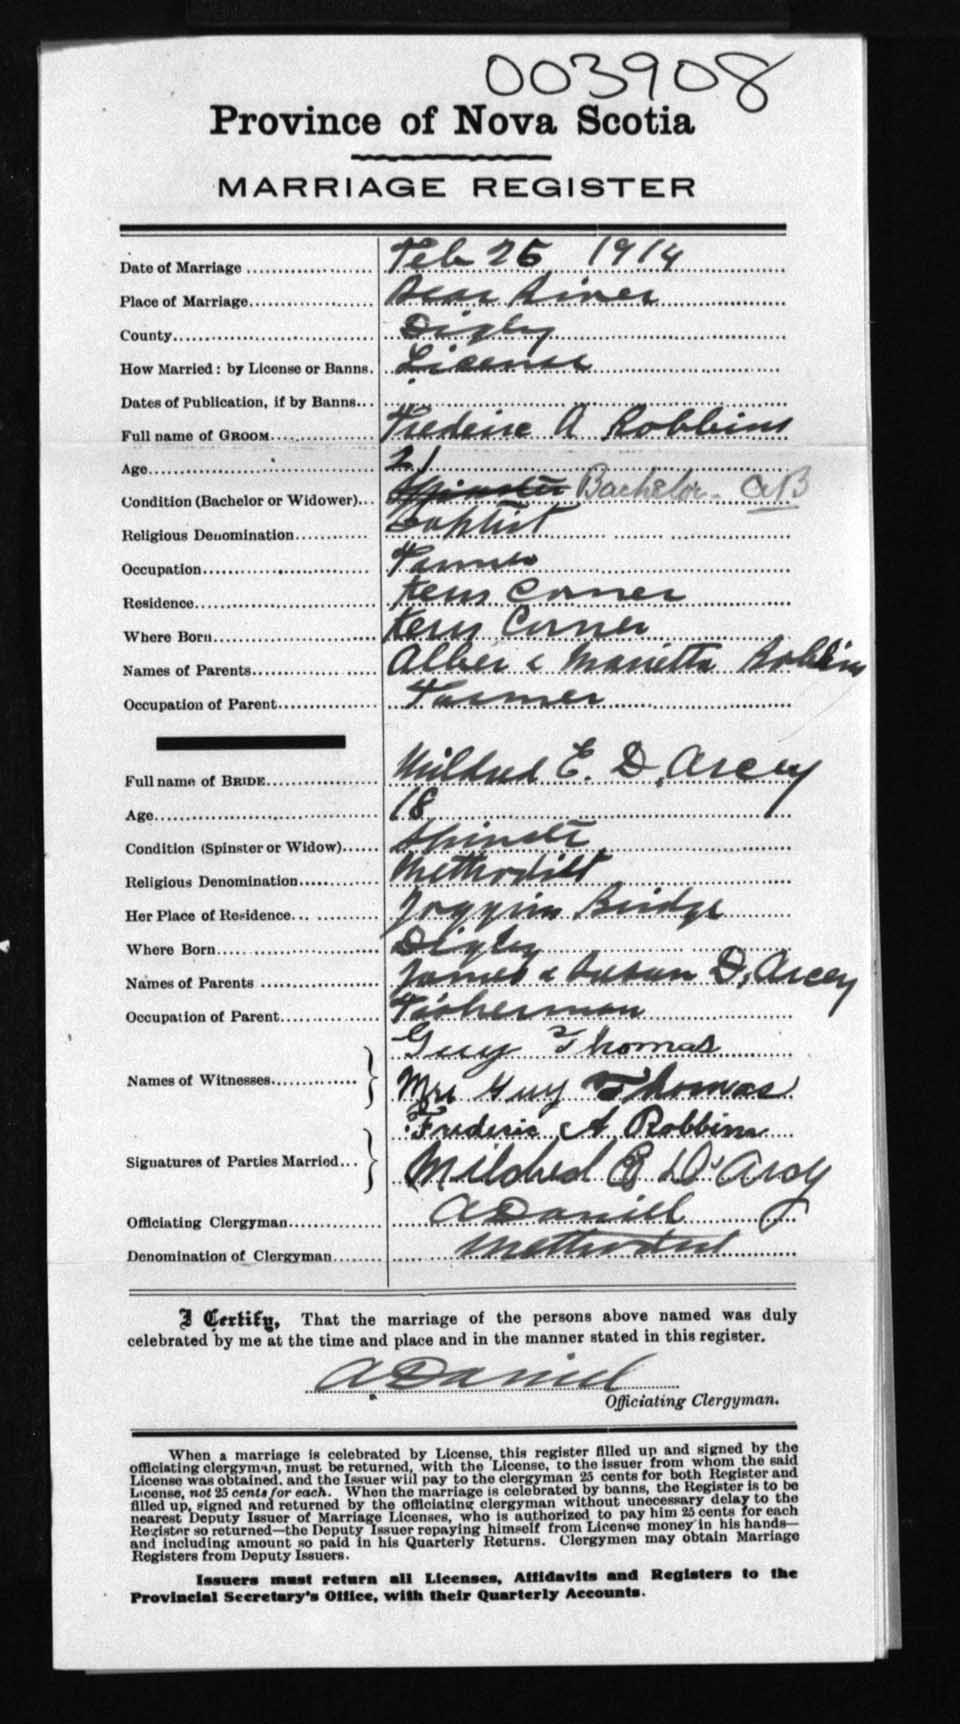 003908
Province of Nova Scotia
MARRIAGE REGISTER
Date of Marriage Feb 25 1914
Place of Marriage Bear River
County Digby
How Married: by License or Banns. License
Dates of Publication, if by Banns
Full name of GROOM Frederic A Robbins
Age 21
Condition (Bachelor or Widower) Spinster Bachelor. AB
Religious Denomination Baptist
Occupation Farmer
Residence Corner
Where Born Corner
Names of Parents Alber & Marietta Robbins
Occupation of Parent Farmer
Full name of BRIDE Mildred E. D, Arcey
Age 18
Condition (Spinster or Widow) Spinster
Religious Denomination Methodist
Her Place of Residence Joggin Bridge
Where Born Digby
Names of Parents James & Susan D, Arcey
Occupation of Parent Fisherman
Names of Witnesses Guy Thomas
Mrs Guy Thomas
Signatures of Parties Married Frederic A Robbins
Mildred E D'Arcy
Officiating Clergyman A Daniel
Denomination of Clergyman Methodist
I Certify, That the marriage of the persons above named was duly
celebrated by me at the time and place and in the manner stated in this register.
A Daniel
Officiating Clergyman.
When a marriage is celebrated by License, this register filled up and signed by the
officiating clergyman, must be returned, with the License, to the issuer from whom the said
License was obtained, and the Issuer will pay to the clergyman 25 cents for both Register and
License, not 25 cents for each. When the marriage is celebrated by banns, the Register is to be
filled up, signed and returned by the officiating clergyman without unnecessary delay to the
nearest Deputy Issuer of Marriage Licenses, who is authorized to pay him 25 cents for each
Register so returned—the Deputy Issuer repaying himself from License money in his hands—
and including amount so paid in his Quarterly Returns. Clergymen may obtain Marriage
Registers from Deputy Issuers.
Issuers must return all Licenses, Affidavits and Registers to the
Provincial Secretary's Office, with their Quarterly Accounts.